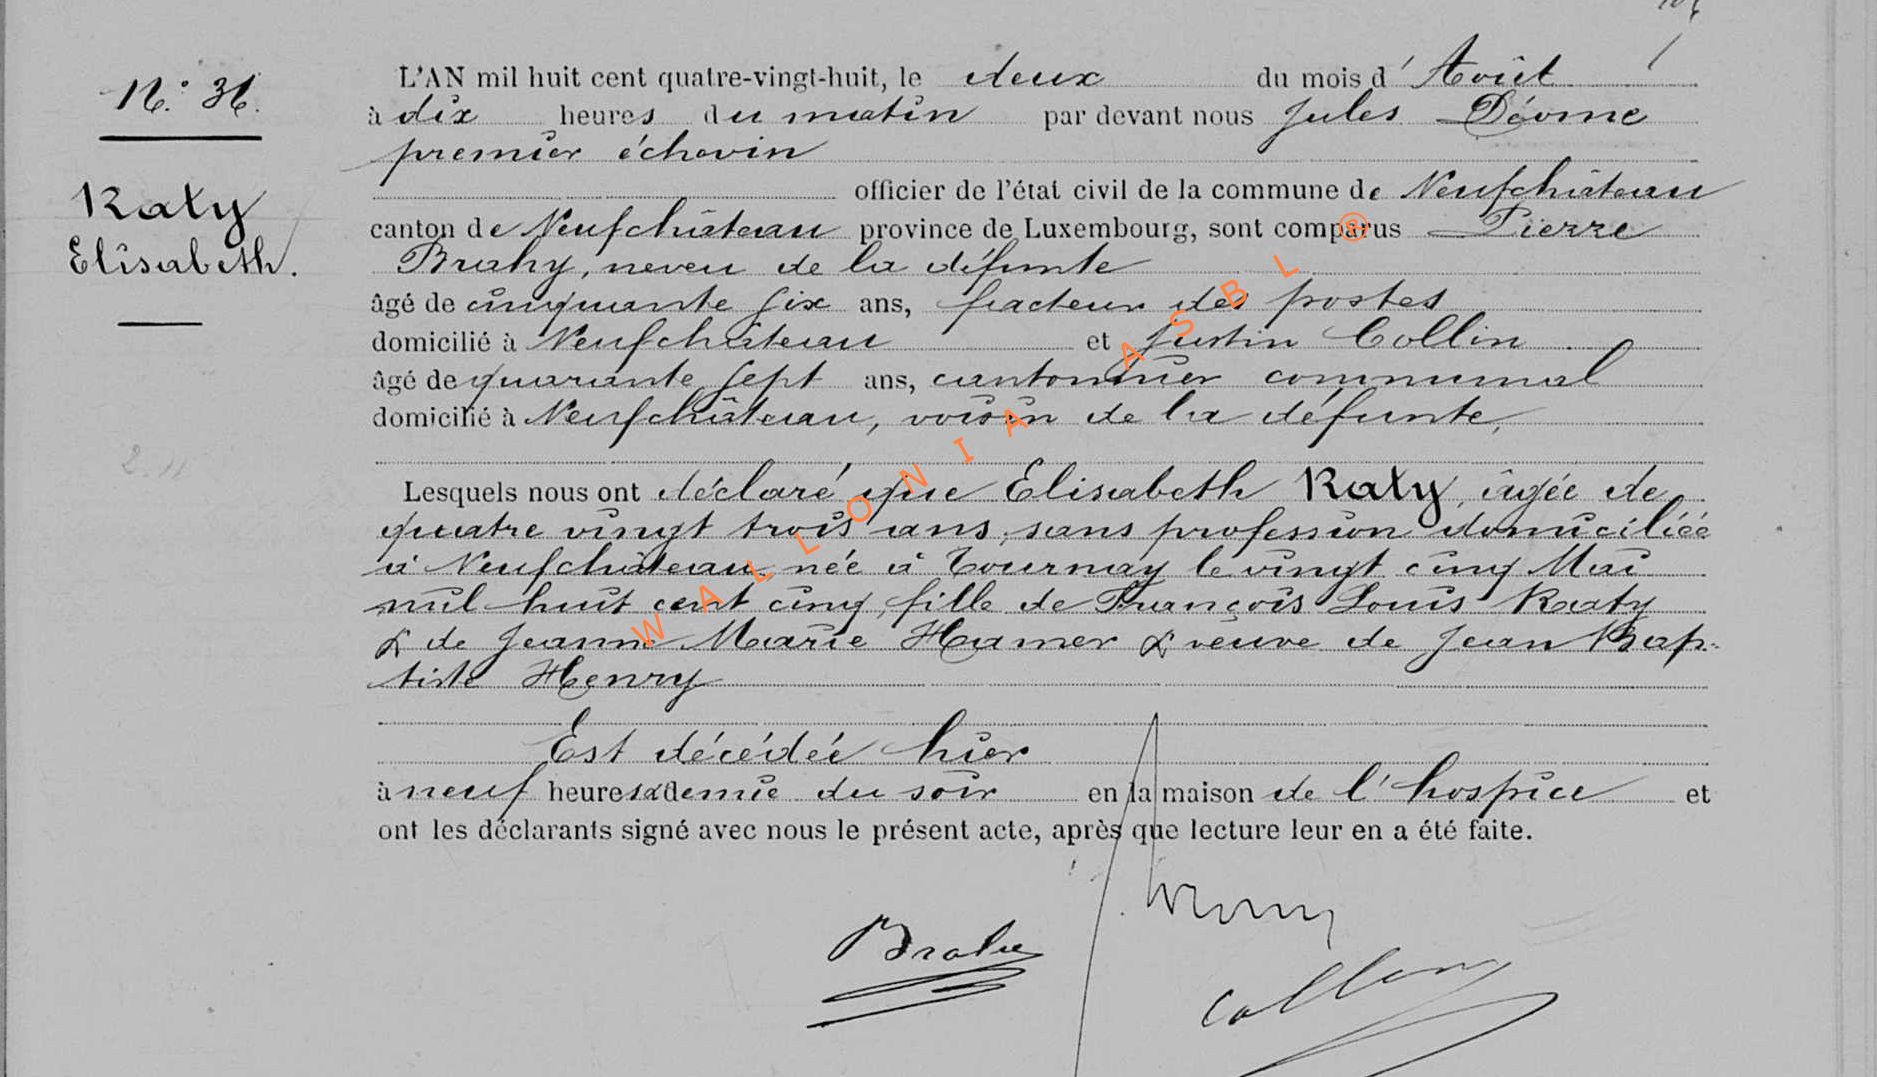 N.° 36.
Katy
Elisabeth.
L'AN mil huit cent quatre-vingt-huit, le deux du mois d'Août
à dix heures du matin par devant nous Jules Déome
premier échevin
officier de l'état civil de la commune de Neufchâteau
canton de Neufchâteau province de Luxembourg, sont comparus Pierre
Brahy, neveu de la défunte
âgé de cinquante six ans, facteur des postes
domicilié à Neufchâteau et Justin Collin
âgé de quarante sept ans, cantonnier communal
domicilié à Neufchâteau, voisin de la défunte,
Lesquels nous ont déclaré que Elisabeth Katy, âgée de
quatre vingt trois ans, sans profession domiciliée
à Neufchâteau née à Tournay le vingt cinq Mai
mil huit cent cinq, fille de François Louis Katy
& de Jeanne Marie Hamer & veuve de Jean Bap-
tiste Henry
Est décédée hier
à neuf heures & demie du soir en la maison de l'hospice et
ont les déclarants signé avec nous le présent acte, après que lecture leur en a été faite.
Brahy
Collin
WALLONIA ASBL ®